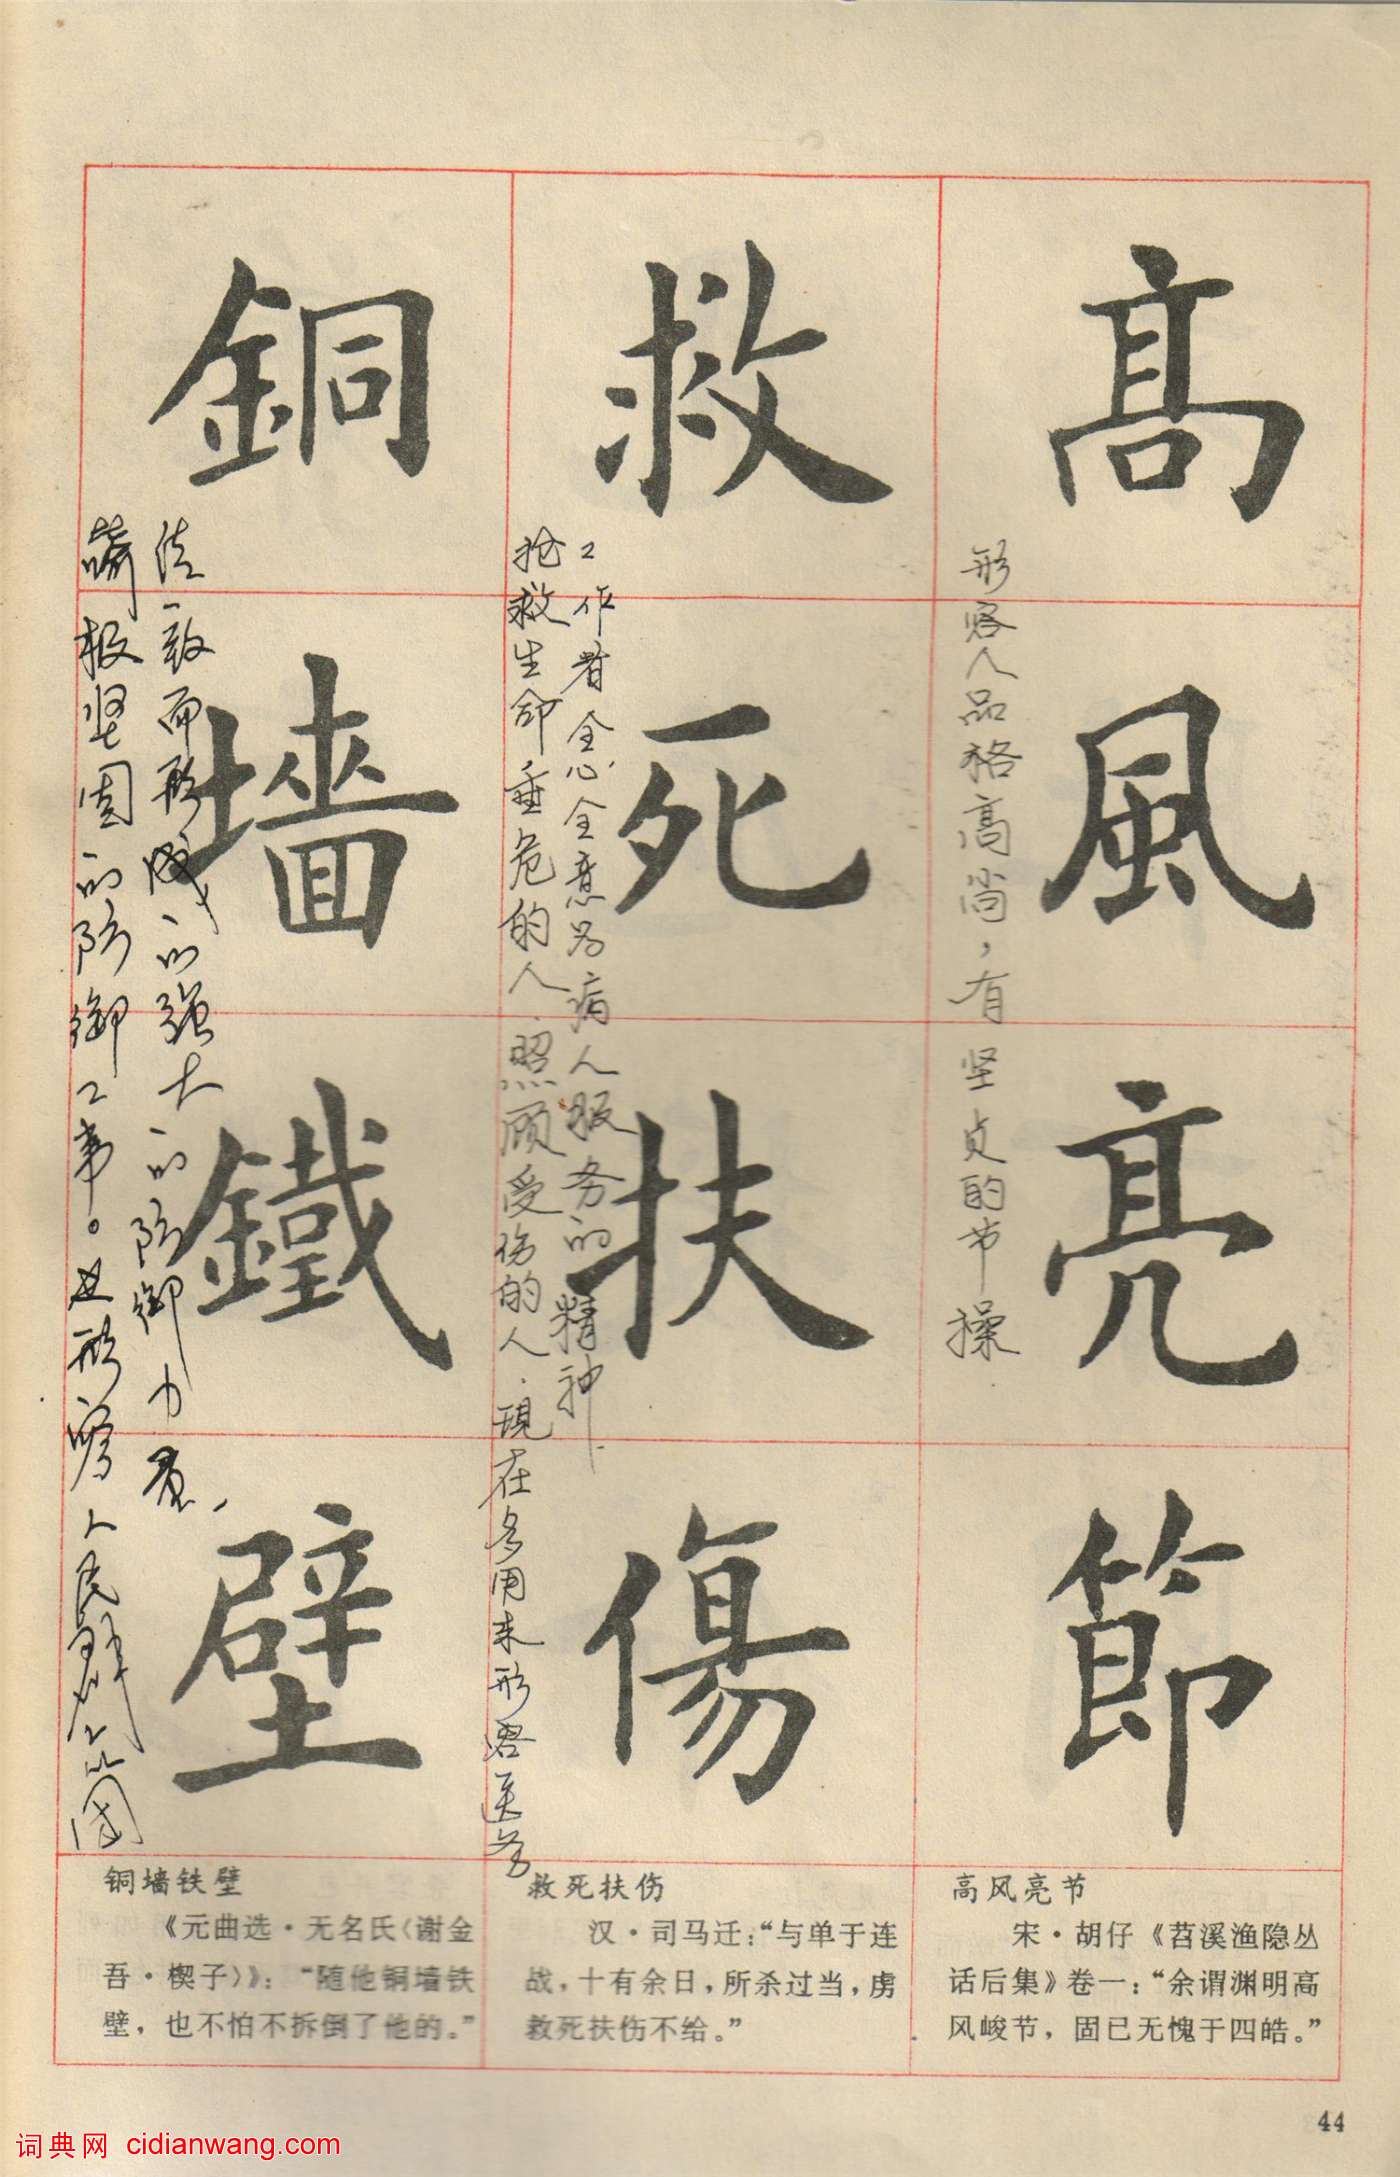 高風亮節
形容人品格高尚，有坚贞的节操
救死扶傷
工作者全心全意为病人服务的精神.
抢救生命垂危的人.照顾受伤的人.现在多用来形容医务
銅墙鐵壁
一致而形成的强大的防御力量,
极坚固的防御工事。也形容人民群众 国
高风亮节
宋·胡仔《苕溪渔隐丛
话后集》卷一：“余谓渊明高
风峻节，固已无愧于四皓。”
救死扶伤
汉·司马迁：“与单于连
战，十有余日，所杀过当，虏
救死扶伤不给。”
铜墙铁壁
《元曲选·无名氏〈谢金
吾·楔子〉》：“随他铜墙铁
壁，也不怕不拆倒了他的。”
44
词典网 cidianwang.com